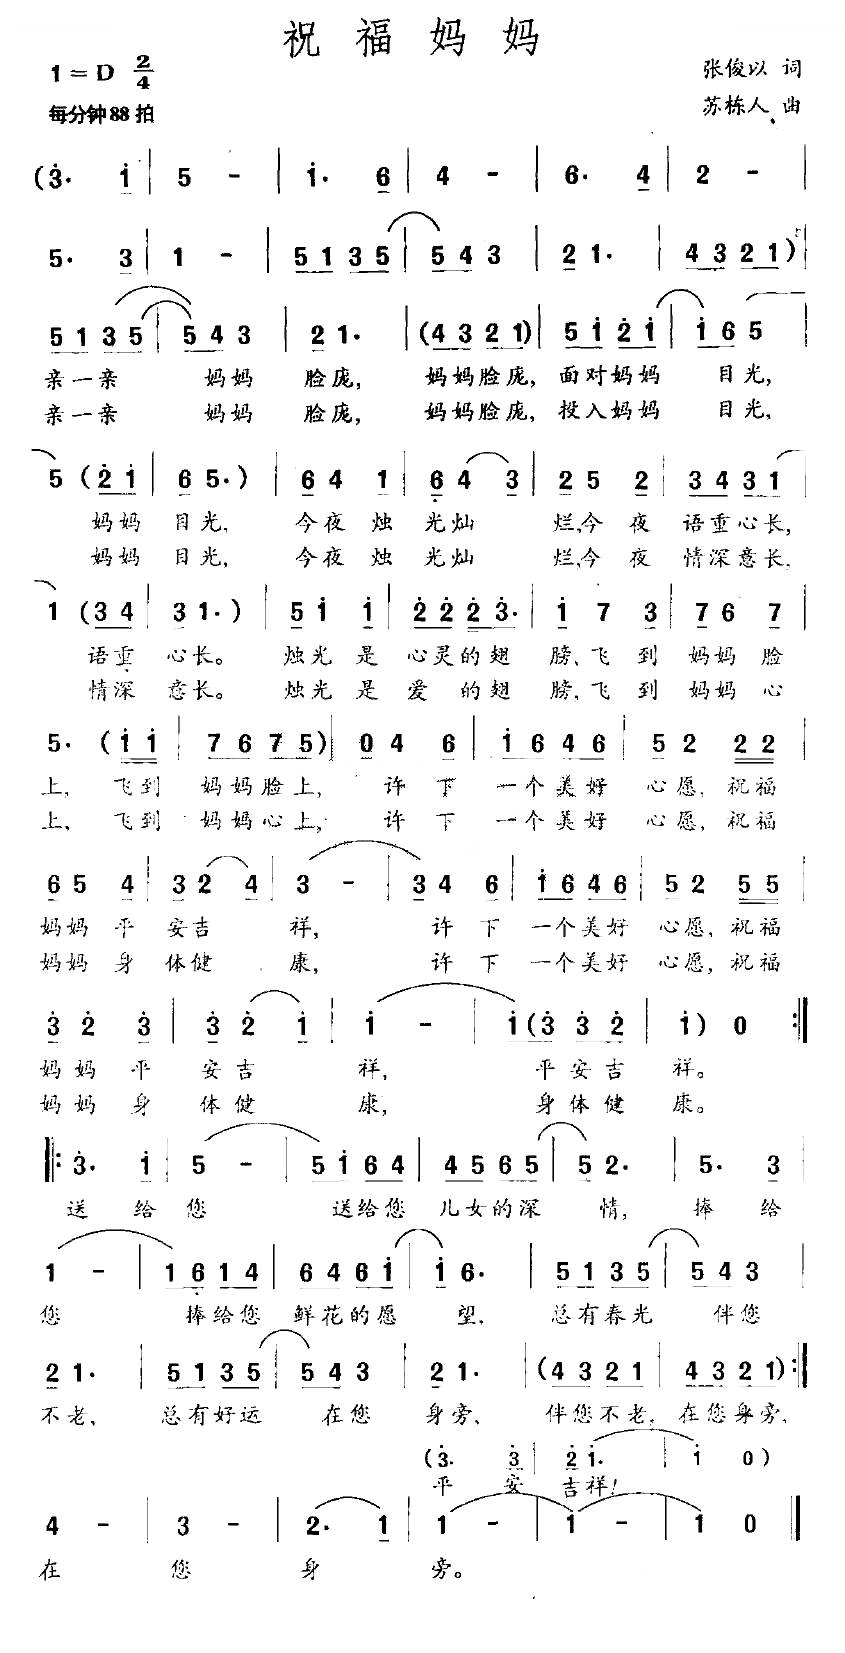 祝福妈妈
1=D 2/4
每分钟88拍
张俊以 词
苏栋人 曲
(3̇. 1̇ | 5 - | 1̇. 6 | 4 - | 6. 4 | 2 - |
5. 3 | 1 - | 5 1 3 5 | 5 4 3 | 2 1. | 4 3 2 1 )
5 1 3 5 | 5 4 3 | 2 1. | (4 3 2 1) | 5 1̇ 2̇ 1̇ | 1̇ 6 5
亲一亲 妈妈 脸庞, 妈妈脸庞, 面对妈妈 目光,
亲一亲 妈妈 脸庞, 妈妈脸庞, 投入妈妈 目光,
5 (2̇ 1̇ | 6 5.) | 6 4 1 | 6̣ 4 3 | 2 5 2 | 3 4 3 1
妈妈 目光, 今夜 烛 光灿 烂,今 夜 语重心长,
妈妈 目光, 今夜 烛 光灿 烂,今 夜 情深意长,
1 (3 4 | 3 1.) | 5 1̇ 1̇ | 2̇ 2̇ 2̇ 3̇. | 1̇ 7 3 | 7 6 7
语重 心长。 烛光 是 心灵的翅 膀,飞 到 妈妈 脸
情深 意长。 烛光 是 爱 的翅 膀,飞 到 妈妈 心
5. (1̇ 1̇ | 7 6 7 5) | 0 4 6 | 1̇ 6 4 6 | 5 2 2 2
上, 飞到 妈妈脸上, 许 下 一个美好 心愿, 祝福
上, 飞到 妈妈心上, 许 下 一个美好 心愿, 祝福
6 5 4 | 3 2 4 | 3 - | 3 4 6 | 1̇ 6 4 6 | 5 2 5 5
妈妈 平 安吉 祥, 许 下 一个美好 心愿, 祝福
妈妈 身 体健 康, 许 下 一个美好 心愿, 祝福
3̇ 2̇ 3̇ | 3̇ 2̇ 1̇ | 1̇ - | 1̇ (3̇ 3̇ 2̇ | 1̇) 0 :‖
妈妈 平 安吉 祥, 平安吉 祥。
妈妈 身 体健 康, 身体健 康。
‖: 3̇. 1̇ | 5 - | 5 1̇ 6 4 | 4 5 6 5 | 5 2. | 5. 3
送 给 您 送给您 儿女的深 情, 捧 给
1 - | 1 6̣ 1 4 | 6 4 6 1̇ | 1̇ 6. | 5 1 3 5 | 5 4 3
您 捧给您 鲜花的愿 望, 总有春光 伴您
2 1. | 5 1 3 5 | 5 4 3 | 2 1. | (4 3 2 1 | 4 3 2 1) :‖
不老, 总有好运 在您 身旁、 伴您不老, 在您身旁,
(3̇. 3̇ | 2̇ 1̇. | 1̇ 0)
平 安 吉祥!
4 - | 3 - | 2. 1 | 1 - | 1 - | 1 0 ‖
在 您 身 旁。